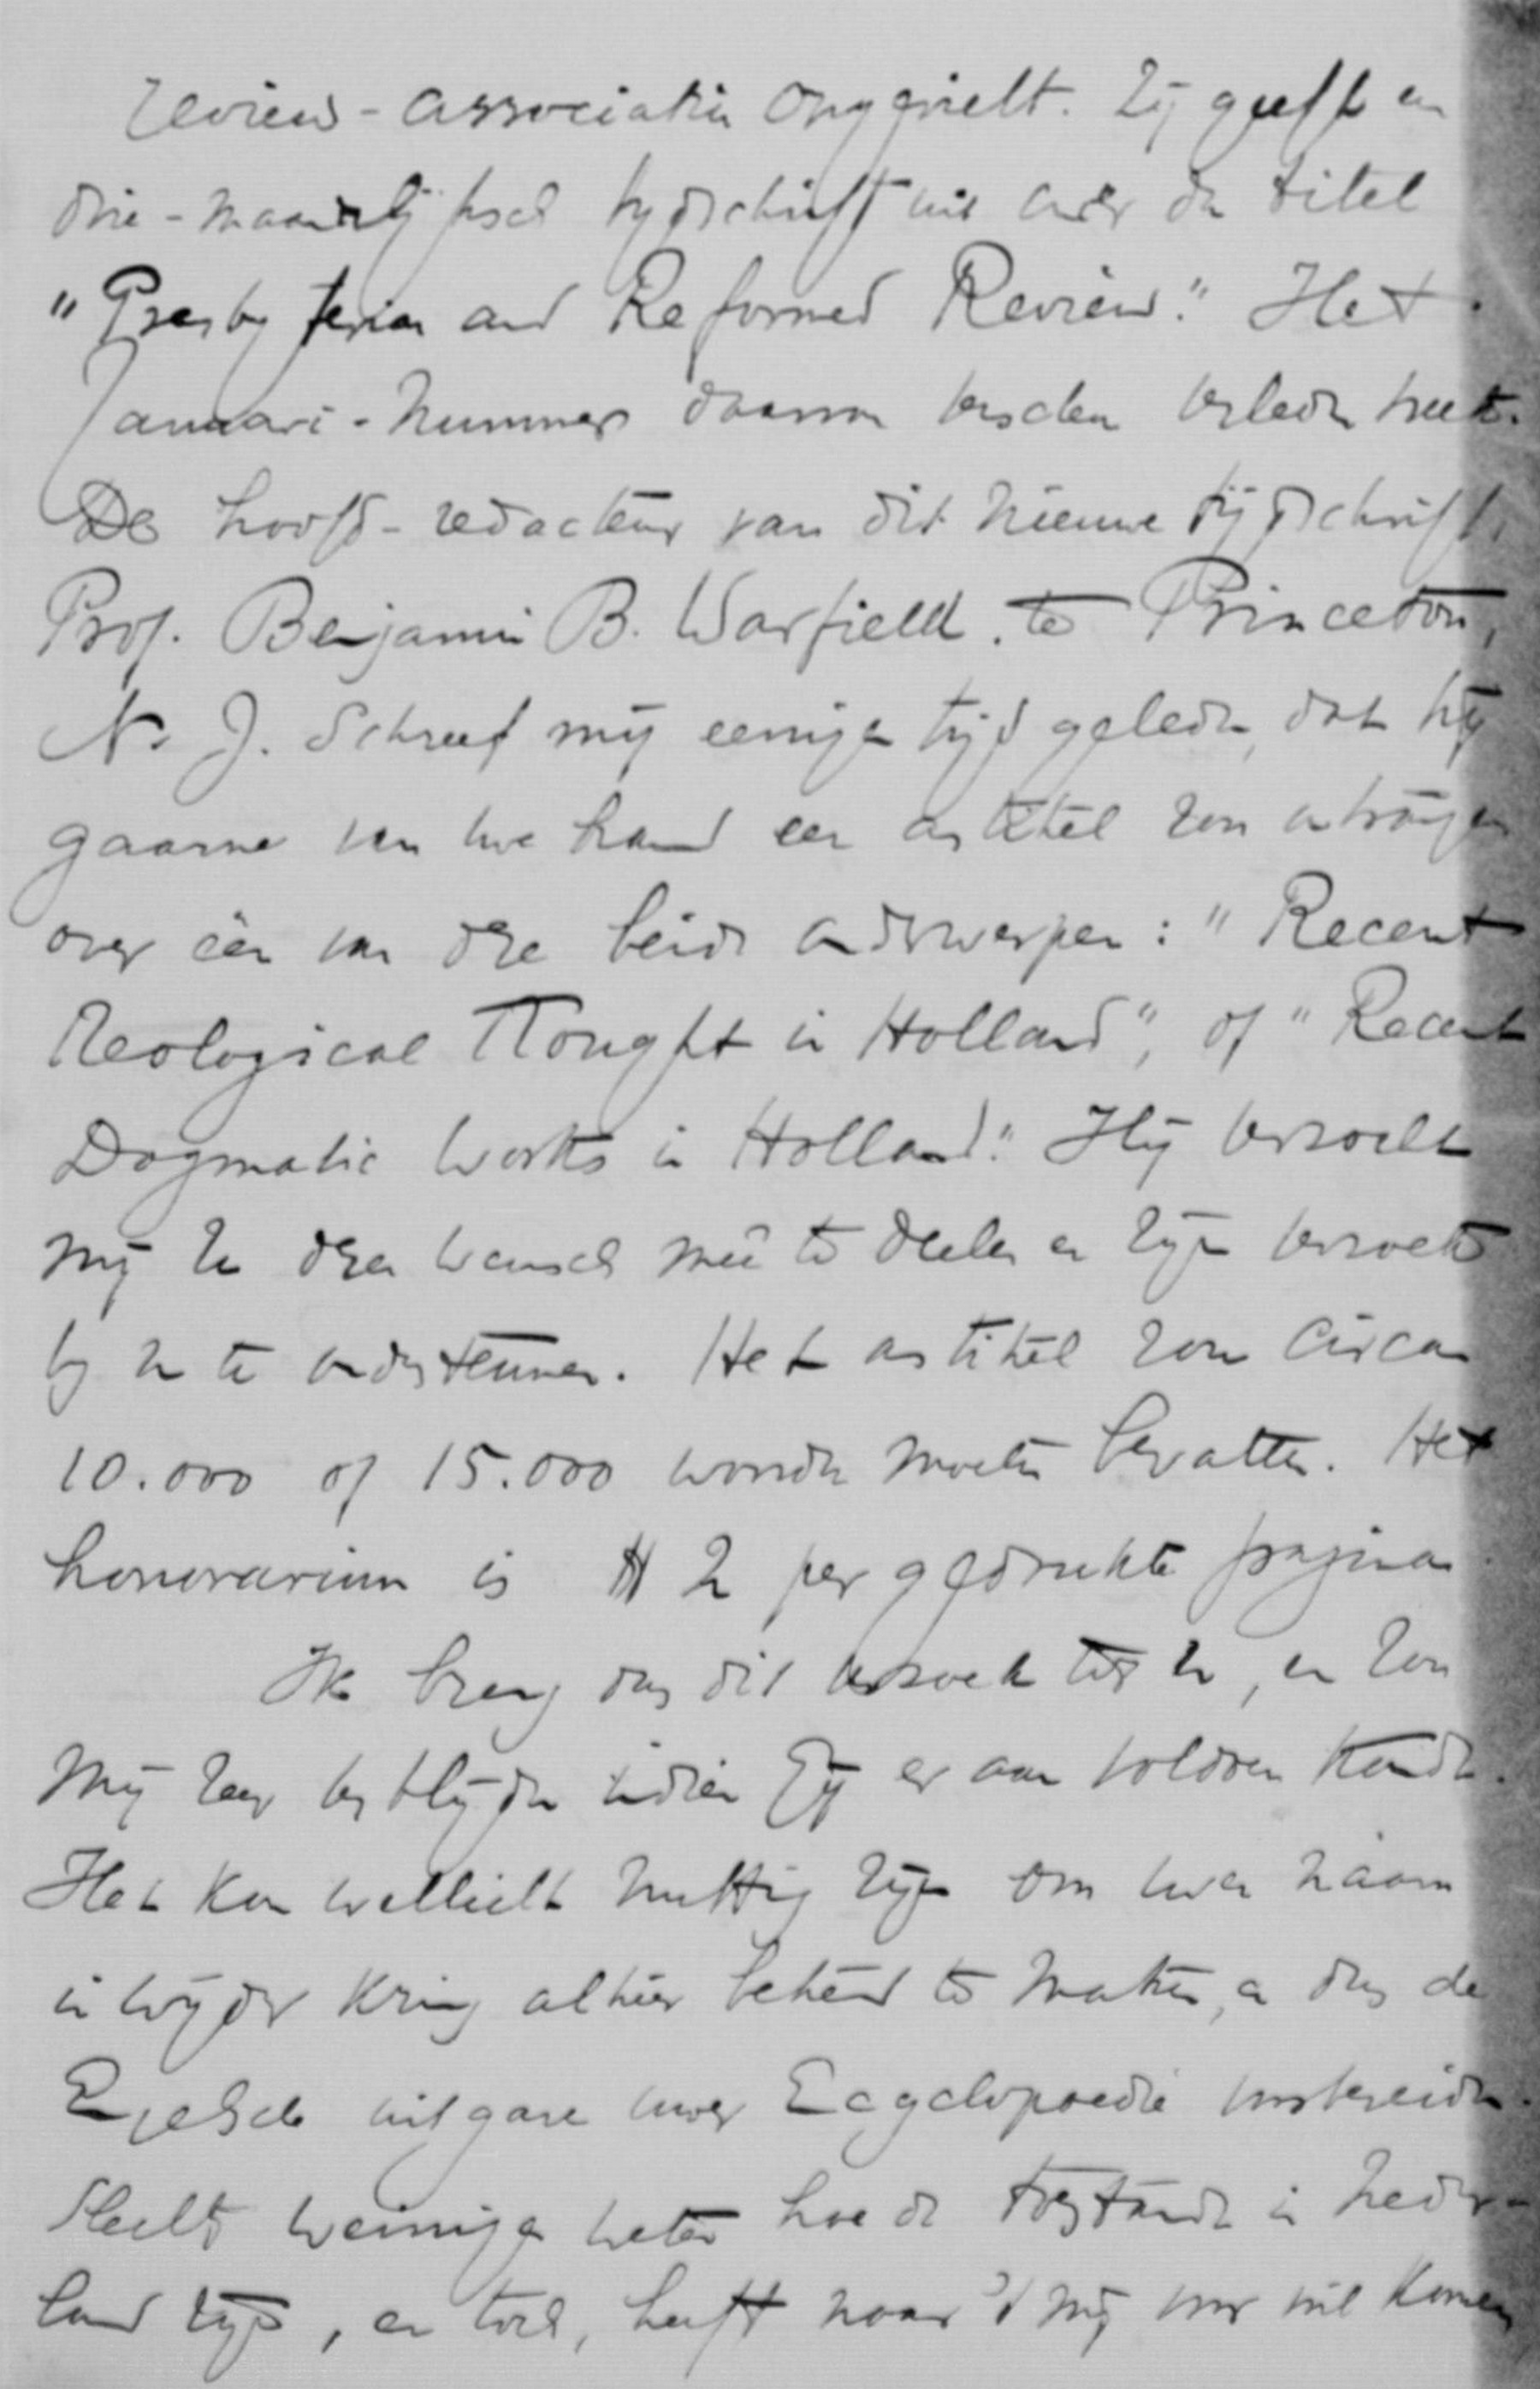 Review-Association opgericht. Zij geeft en
drie-maandelijksch tijdschrift uit onder den titel
"Presbyterian and Reformed Review." Het
Januari-nummer daarvan verscheen verleden week.
De hoofd-redacteur van dit nieuwe tijdschrift,
Prof. Benjamin B. Warfield te Princeton,
N. J. schreef mij eenigen tijd geleden, dat hij
gaarne van uwe hand een artikel zou ontvangen
over één van deze beide onderwerpen: "Recent
Theological Thought in Holland", of "Recent
Dogmatic Works in Holland." Hij verzocht
mij U dezen wensch meê te deelen en zijn verzoek
bij U te ondersteunen. Het artikel zou circa
10.000 of 15.000 woorden moeten bevatten. Het
honorarium is $ 2 per gedrukte pagina
Ik breng dus dit verzoek tot U, en zou
mij zeer verblijden indien Gij er aan voldoen kondt.
Het kan wellicht nuttig zijn om uwen naam
in wijder kring alhier bekend te maken, en dus de
Engelsche uitgave uwer Encyclopaedie voorbereiden.
Slechts weinigen weten hoe de toestanden in Neder-
land zijn, en toch, heeft naar 't mij voor wil komen